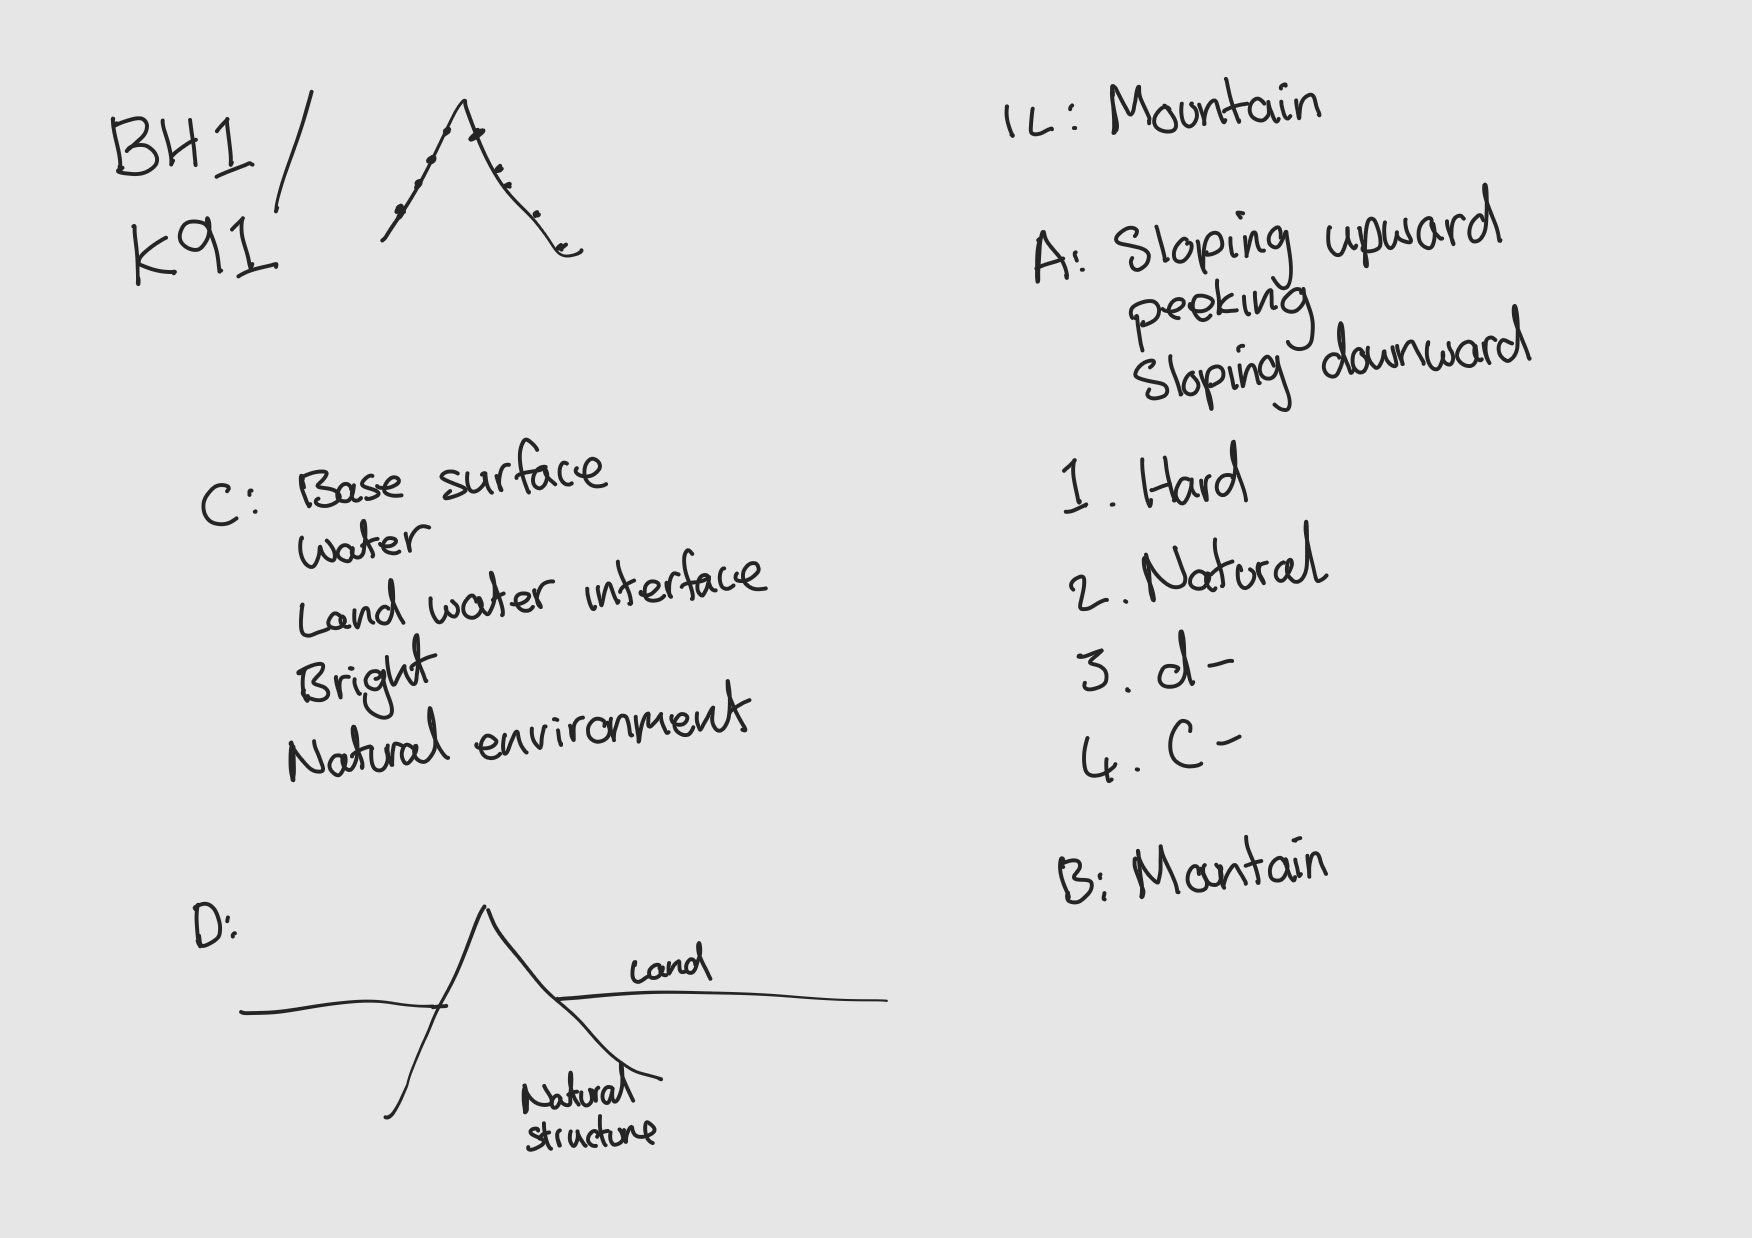 BH1/
K91
IL: Mountain
A: Sloping upward
peeking
Sloping downward
1. Hard
2. Natural
3. d-
4. C-
B: Mantain
C: Base surface
water
Land water interface
Bright
Natural environment
D:
Land
Natural
structure